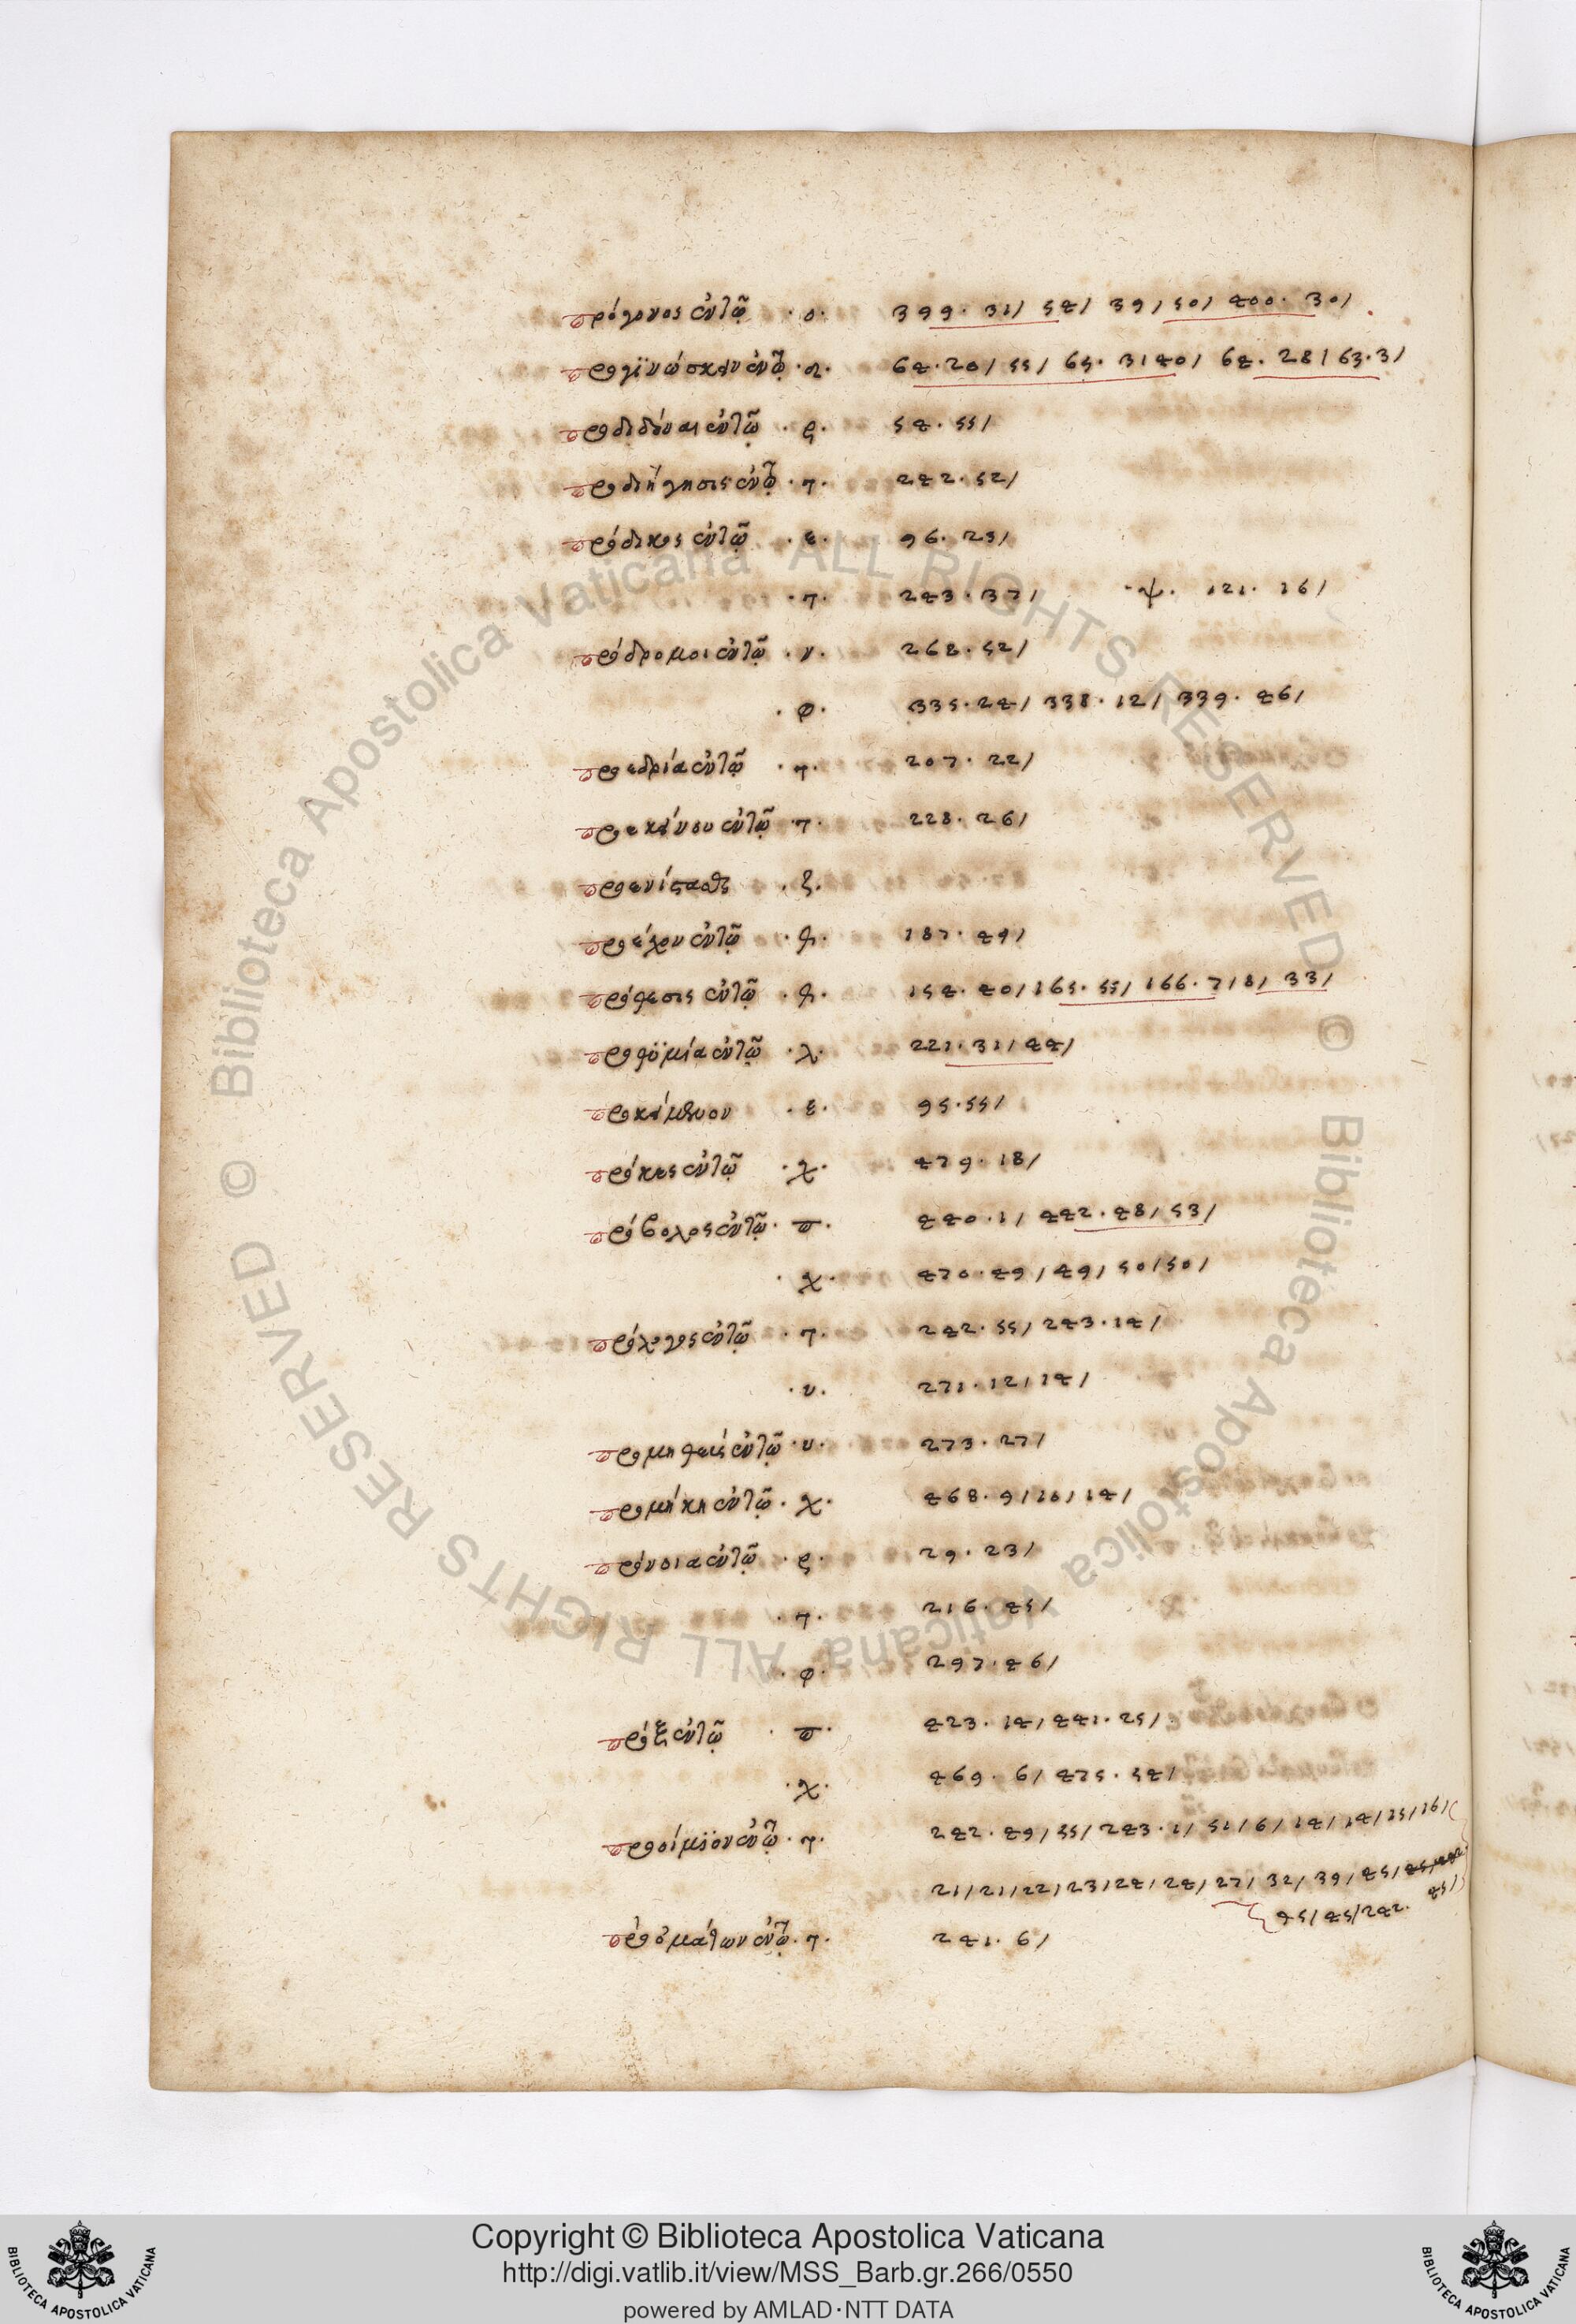 πρόγονος ἐν τῷ · ο · 399 · 31/ 54/ 39/ 50/ 400 · 30/
προγϊνώσκειν ἐν τῷ · α · 64 · 20/ 55/ 65 · 3/ 40/ 64 · 28/ 63 · 3/
προδιδόναι ἐν τῷ · ρ · 54 · 55/
προδιήγησις ἐν τῷ · τ · 242 · 52/
πρόδικος ἐν τῷ · ε · 96 · 23/
· τ · 243 · 37/ · ψ · 121 · 16/
πρόδρομοι ἐν τῷ · υ · 268 · 52/
· φ · 335 · 24/ 338 · 12/ 339 · 46/
προεδρία ἐν τῷ · τ · 207 · 22/
προεκείνου ἐν τῷ · τ · 228 · 26/
προενίστασθαι · ξ ·
προέχον ἐν τῷ · θ · 187 · 49/
πρόθεσις ἐν τῷ · θ · 154 · 40/ 165 · 55/ 166 · 7/ 8/ 33/
προθϋμία ἐν τῷ · λ · 221 · 31/ 44/
προκείμενον · ε · 95 · 55/
πρόκνς ἐν τῷ · χ · 479 · 18/
πρόβολος ἐν τῷ · π · 440 · 1/ 442 · 48/ 53/
· χ · 470 · 49/ 49/ 50/ 50/
πρόλογος ἐν τῷ · τ · 242 · 55/ 243 · 14/
· υ · 271 · 12/ 14/
προμηθεὺς ἐν τῷ · υ · 273 · 27/
προμήκη ἐν τῷ · χ · 468 · 9/ 10/ 14/
πρόνοια ἐν τῷ · ρ · 29 · 23/
· τ · 216 · 45/
· φ · 297 · 46/
πρόξ ἐν τῷ · π · 423 · 14/ 441 · 25/
· χ · 469 · 6/ 475 · 54/
προοίμϊον ἐν τῷ · τ · 242 · 49/ 55/ 243 · 1/ 51/ 6/ 14/ 14/ 15/ 16/
21/ 21/ 22/ 23/ 24/ 24/ 27/ 32/ 39/ 45/
45/ 45/ 242 · 45/
προομάτων ἐν τῷ · τ · 241 · 6/
© Biblioteca Apostolica Vaticana ALL RIGHTS RESERVED
© Biblioteca Apostolica Vaticana ALL RIGHTS RESERVED
Copyright © Biblioteca Apostolica Vaticana
http://digi.vatlib.it/view/MSS_Barb.gr.266/0550
powered by AMLAD·NTT DATA
BIBLIOTECA APOSTOLICA VATICANA
BIBLIOTECA APOSTOLICA VATICANA